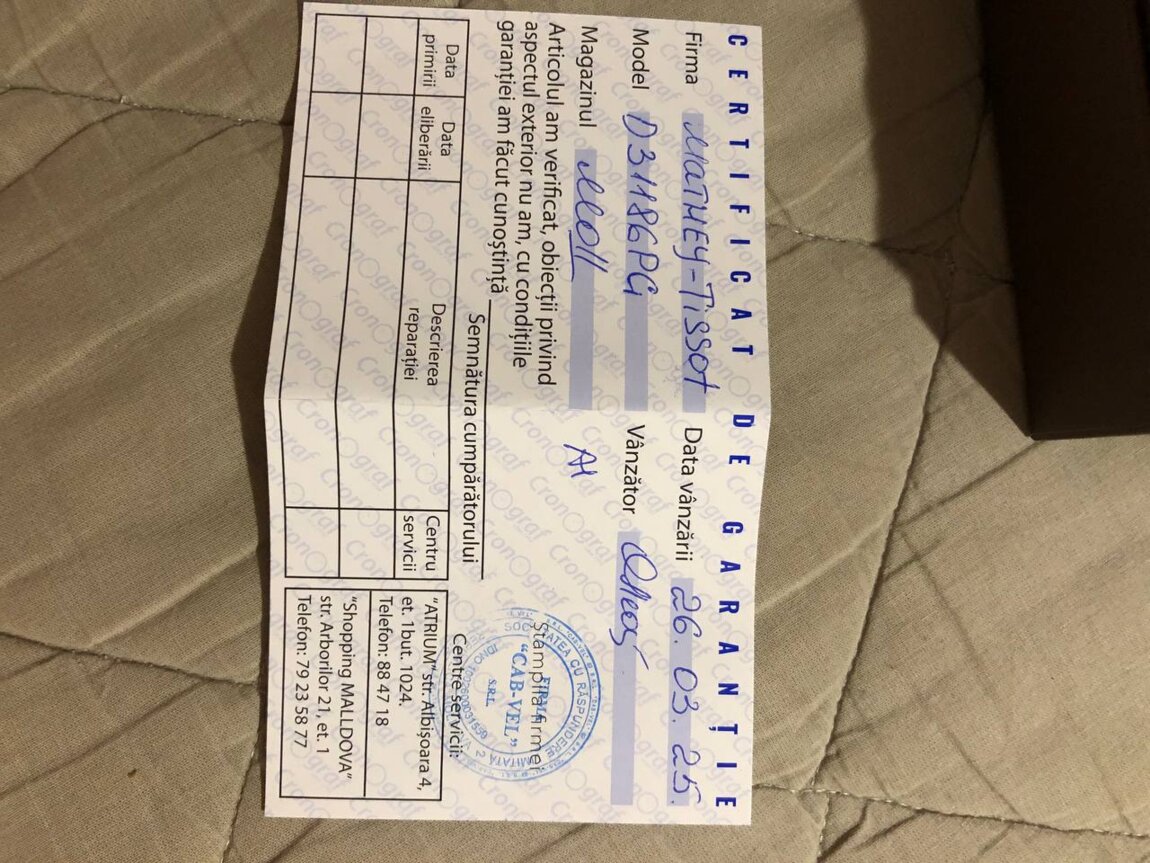 CERTIFICAT DE GARANȚIE
Firma MATHEY-TISSOT Data vânzării 26.03.25.
Model D31186PG Vânzător
Magazinul Moll
Articolul am verificat, obiecții privind
aspectul exterior nu am, cu condițiile
garanției am făcut cunoștință
Semnătura cumpărătorului
Ștampila firmei
SOCIETATEA CU RĂSPUNDERE LIMITATĂ
FIRMA
"CAB-VEL"
S.R.L.
Data primirii
Data eliberării
Descrierea reparației
Centru servicii
Centre servicii:
"ATRIUM" str. Albișoara 4,
et. 1 but. 1024.
Telefon: 88 47 18
"Shopping MALLDOVA"
str. Arborilor 21, et. 1
Telefon: 79 23 58 77
CronOgraf